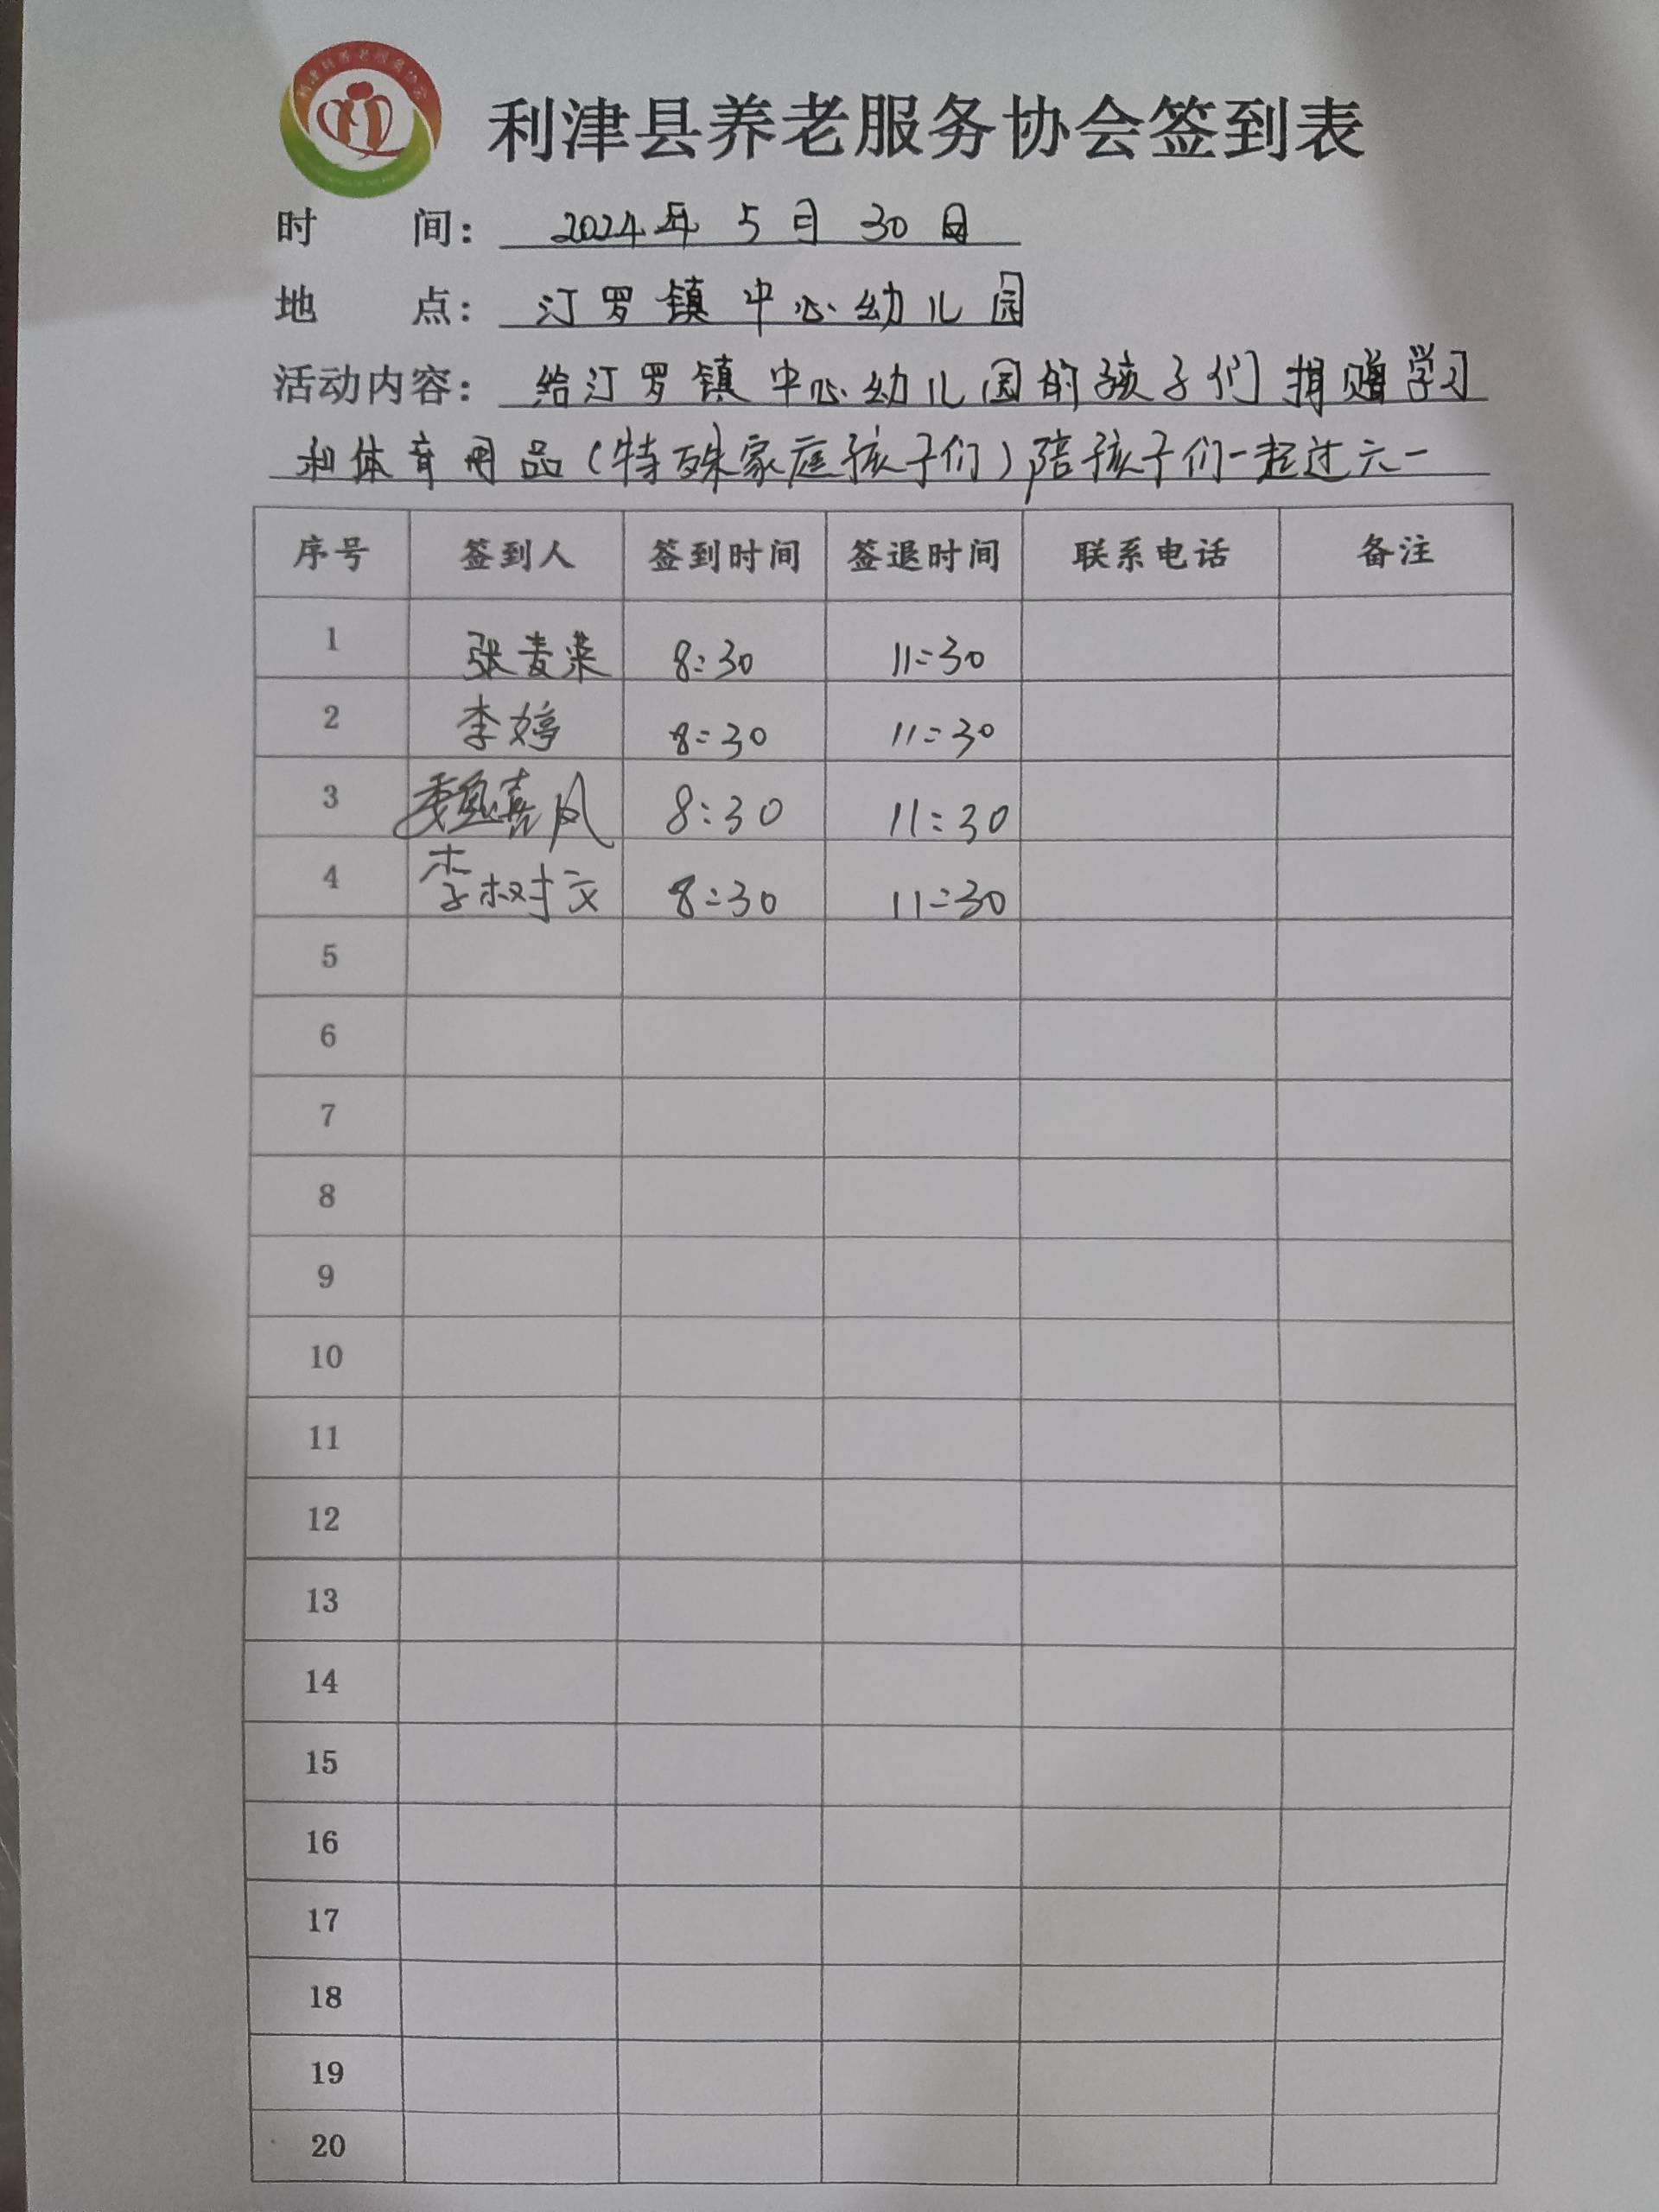 利津县养老服务协会
利津县养老服务协会签到表
时 间：2024年 5月 30日
地 点：汀罗镇中心幼儿园
活动内容：给汀罗镇中心幼儿园的孩子们捐赠学习
和体育用品(特殊家庭孩子们)陪孩子们一起过六一
序号 签到人 签到时间 签退时间 联系电话 备注
1 张麦 8:30 11:30
2 李婷 8:30 11:30
3 魏喜凤 8:30 11:30
4 李树文 8:30 11:30
5
6
7
8
9
10
11
12
13
14
15
16
17
18
19
20